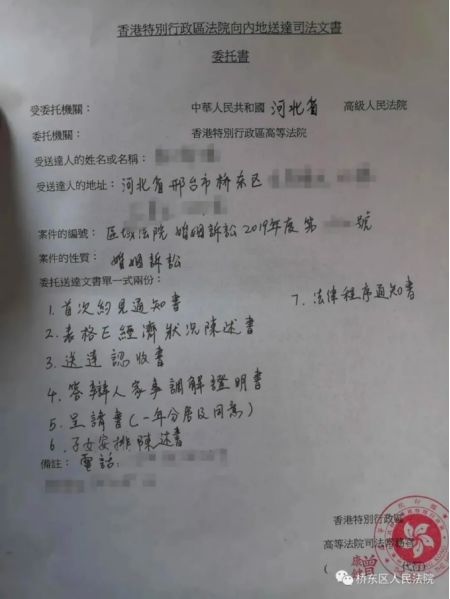 香港特別行政區法院向內地送達司法文書
委托書
受委托機關： 中華人民共和國 河北省 高級人民法院
委托機關： 香港特別行政區高等法院
受送達人的姓名或名稱：
受送達人的地址： 河北省邢台市桥东区
案件的編號： 區域法院 婚姻訴訟 2019年度 第 號
案件的性質： 婚姻訴訟
委托送達文書單一式兩份：
1. 首次約見通知書 7. 法律程序通知書
2. 表格E 經濟狀况陳述書
3. 送達認收書
4. 答辯人家事調解證明書
5. 呈請書(一年分居及同意)
6. 子女安排陳述書
備註： 電話:
香港特別行政區
高等法院司法常務官
桥东区人民法院